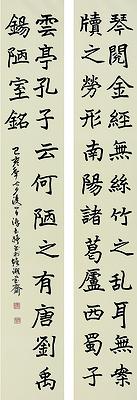 琴閱金經無絲竹之乱耳無案
牘之勞形南陽諸葛廬西蜀子
雲亭孔子云何陋之有唐劉禹
錫陋室銘